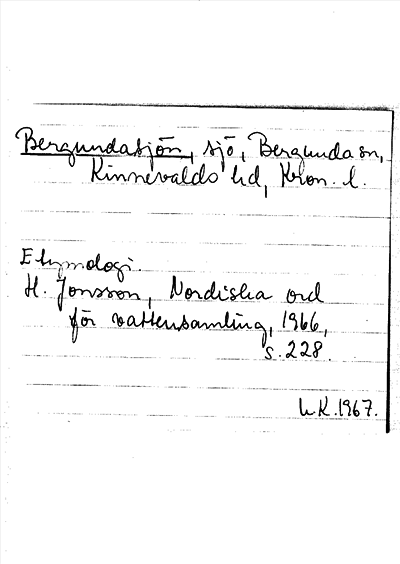 Bergundasjön, sjö, Bergunda sn,
Kinnevalds hd, Kron. l.
Etymologi.
H. Jonsson, Nordiska ord
för vattensamling, 1966,
s. 228.
LK. 1967.